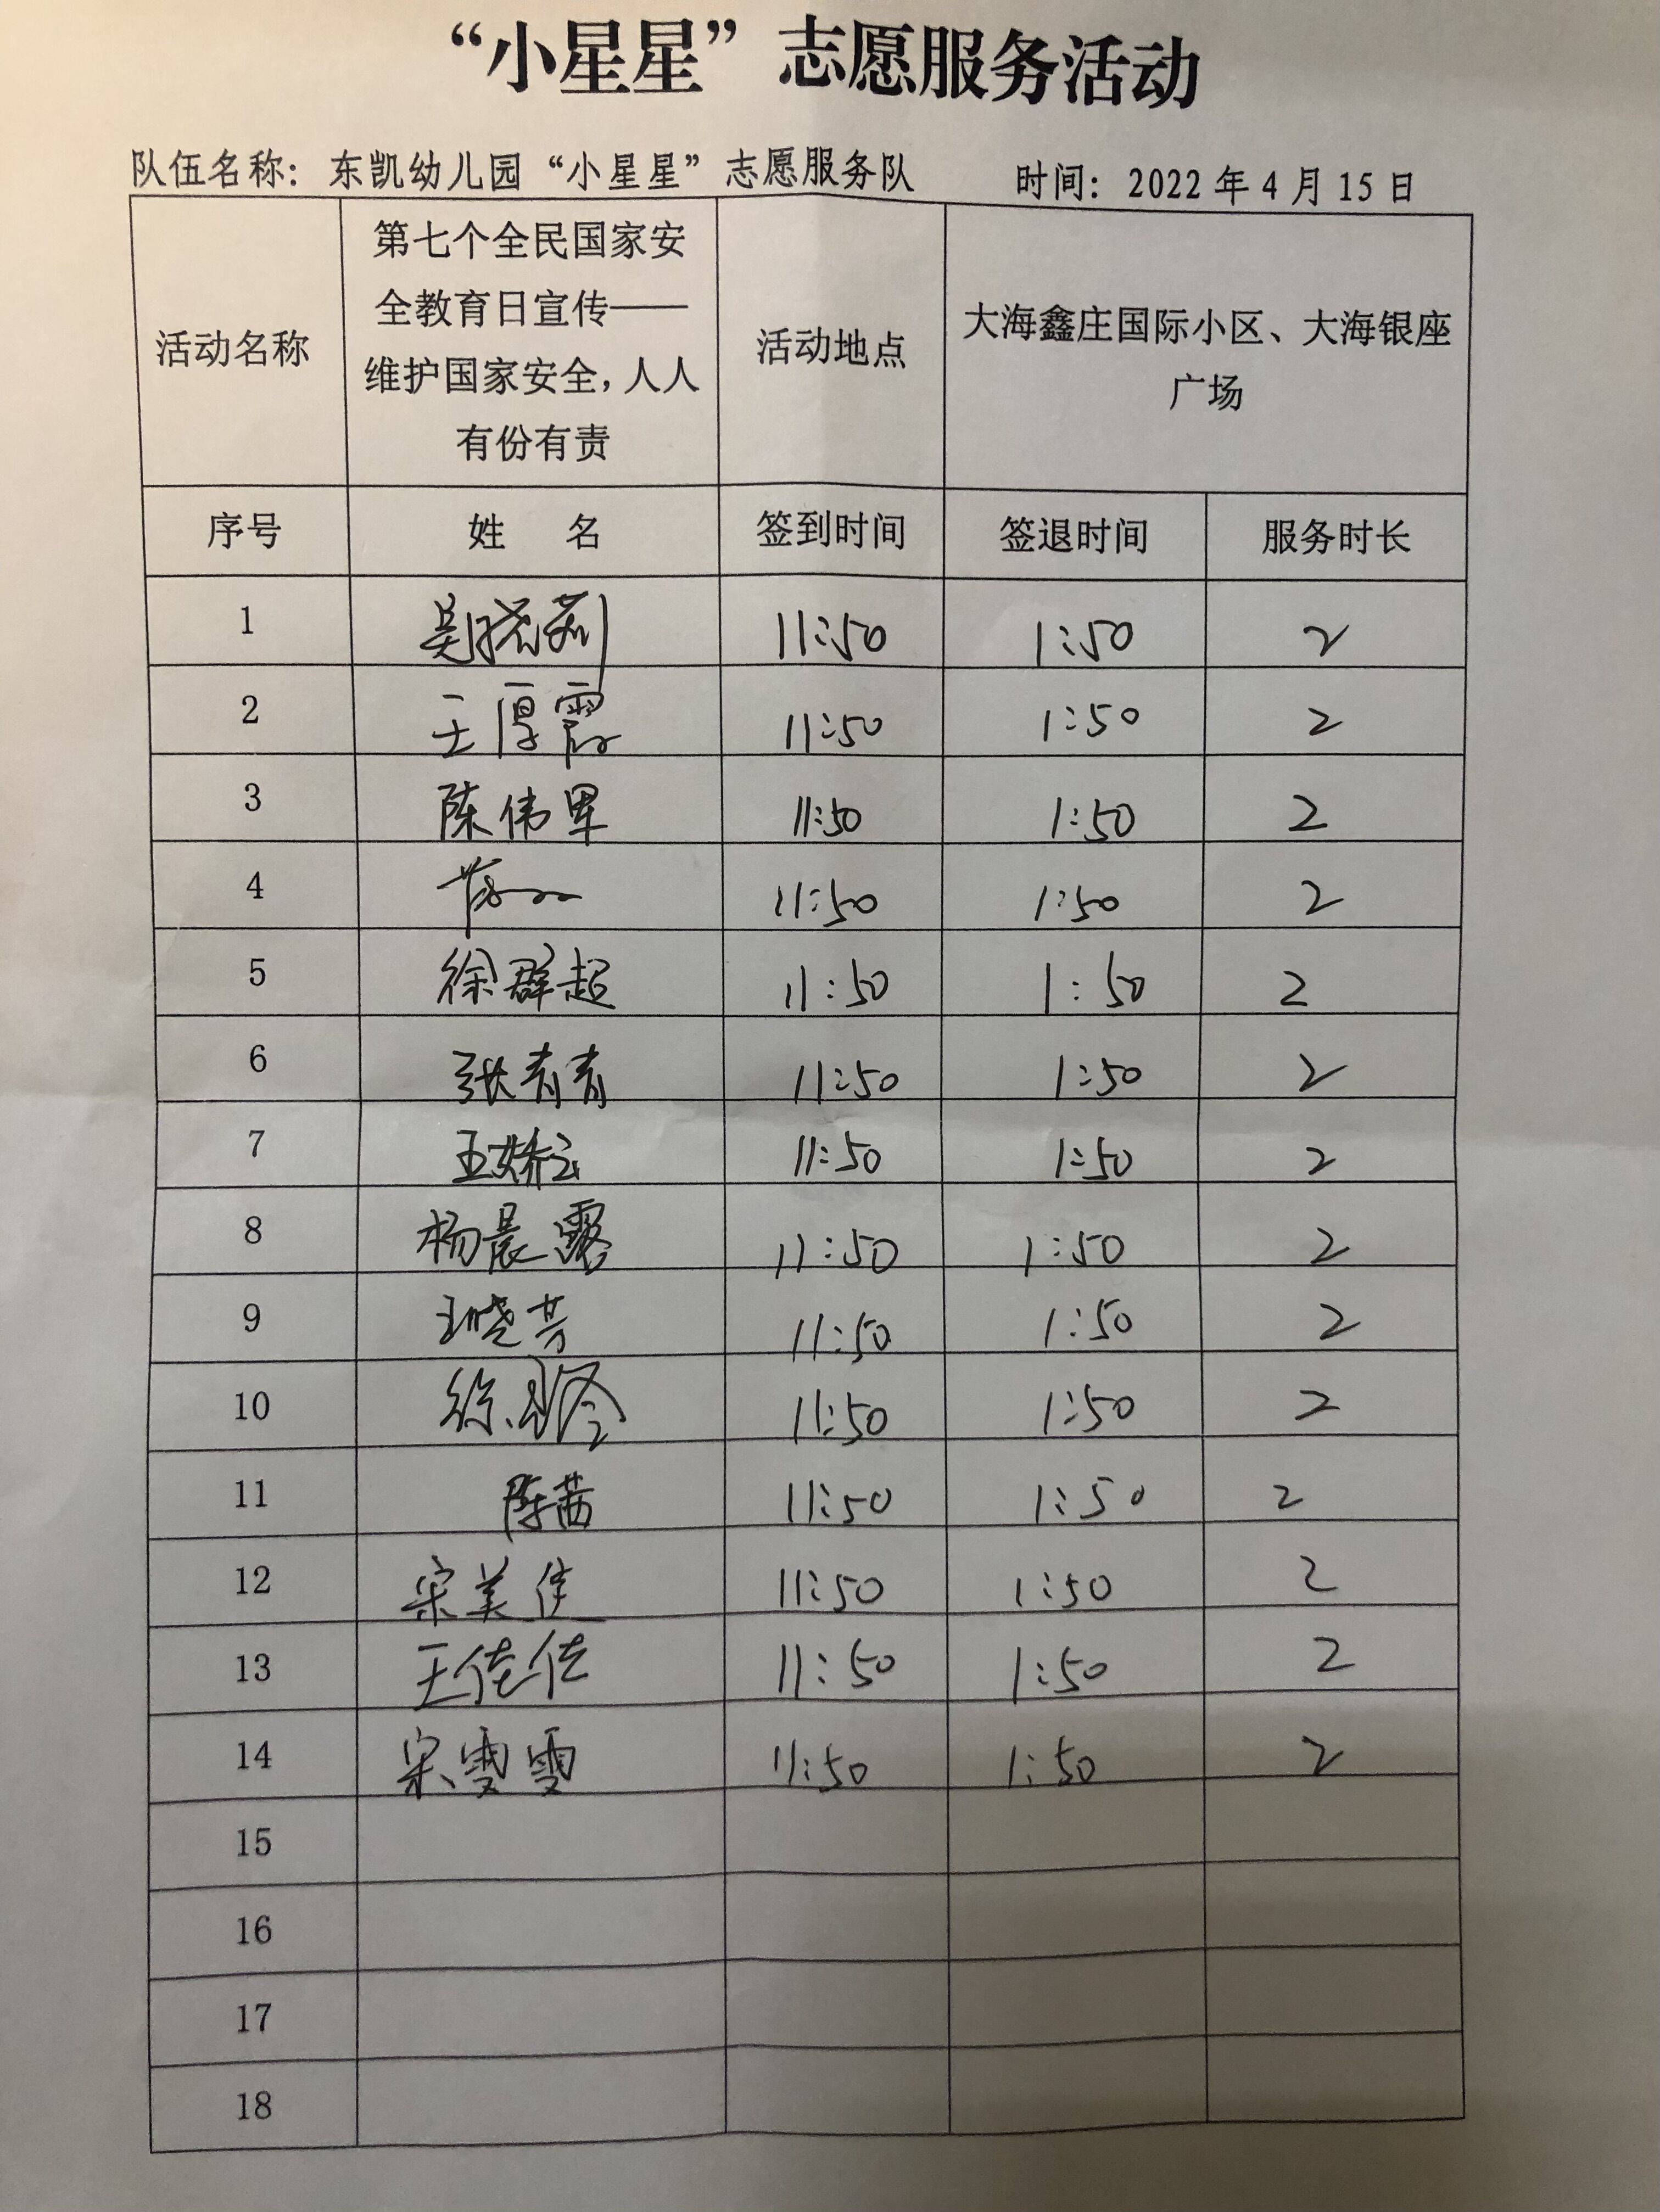 “小星星”志愿服务活动
队伍名称：东凯幼儿园“小星星”志愿服务队 时间：2022年4月15日
活动名称
第七个全民国家安
全教育日宣传——
维护国家安全，人人
有份有责
活动地点
大海鑫庄国际小区、大海银座
广场
序号 姓 名 签到时间 签退时间 服务时长
1 吴晓莉 11:50 1:50 2
2 王厚霞 11:50 1:50 2
3 陈伟军 11:50 1:50 2
4 11:50 1:50 2
5 徐群超 11:50 1:50 2
6 张青青 11:50 1:50 2
7 王娇云 11:50 1:50 2
8 杨晨露 11:50 1:50 2
9 王晓芳 11:50 1:50 2
10 徐 11:50 1:50 2
11 陈茜 11:50 1:50 2
12 宋美佳 11:50 1:50 2
13 王佳佳 11:50 1:50 2
14 宋雯雯 11:50 1:50 2
15
16
17
18